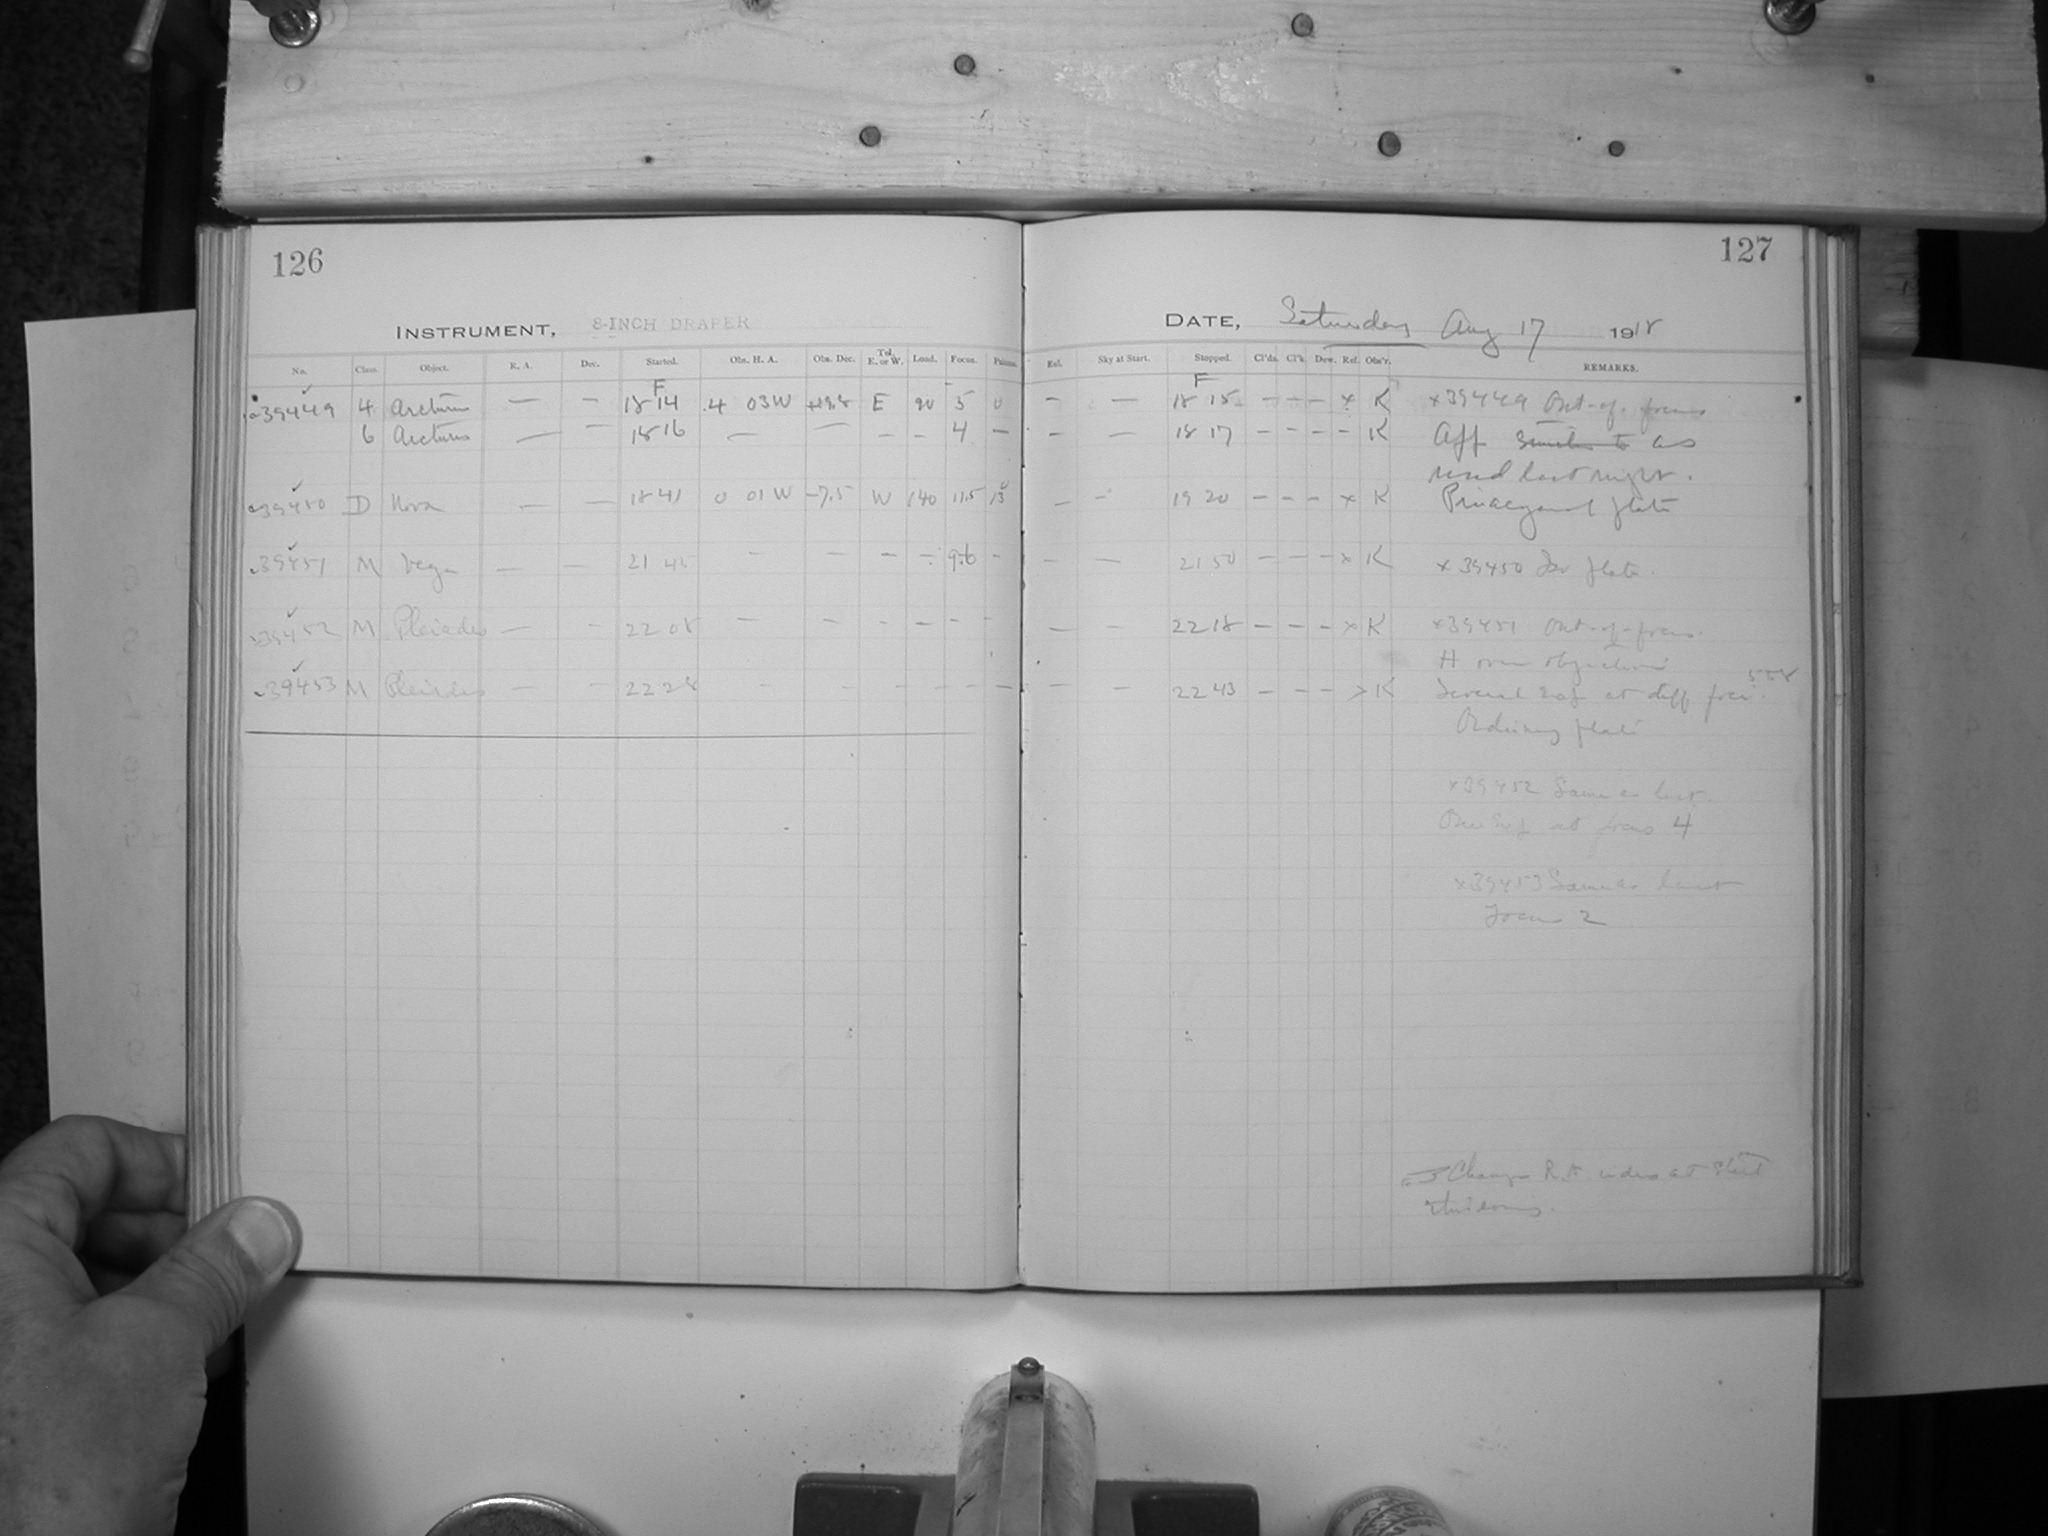 126
INSTRUMENT, 8-INCH DRAPER
No. Class. Object. R. A. Dec. Started. Obs. H. A. Obs. Dec. Tel. E. or W. Load. Focus.
39449 4 Arcturus — — F 18 14 4 03 W E 90 5 0
6 Arcturus — — 18 16 — — – – 4 –
39450 D Nova — — 18 41 0 01 W –7.5 W 140 11.5 13
39451 M Vega — — 21 45 – – – – 9.6 –
39452 M Pleiades — – 22 08 – – – – – –
39453 M Pleiades – – 22 28 – – – – – –
127
DATE, Saturday Aug 17 1918
Exl. Sky at Start. Stopped. Cl'ds. Cl'k. Dew. Ref. Obs'r. REMARKS.
– — F 18 15 – – – x K x 39449 Out-of-focus
– — 18 17 – – – – K Aff similar to as
used last night.
– – 19 20 – – – x K Pinacyanol plate
– — 21 50 – – – x K x 39450 Iso plate.
– – 22 18 – – – x K x 39451 Out-of-focus.
H over objective
– – 22 43 – – – > K Several at diff foci.
Ordinary plate
x 39452 Same as last.
One at focus 4
x 39453 Same as last
Focus 2
Change R.A. index at start